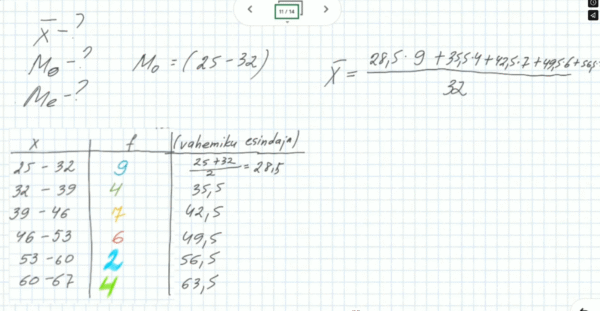 11 / 14
x̄ - ?
Mo - ?
Me - ?
Mo = (25 - 32)
x̄ = 28,5 · 9 + 35,5 · 4 + 42,5 · 7 + 49,5 6 + 56,5
32
x f (vahemiku esindaja)
25 - 32 9 25 + 32 / 2 = 28,5
32 - 39 4 35,5
39 - 46 7 42,5
46 - 53 6 49,5
53 - 60 2 56,5
60 - 67 4 63,5